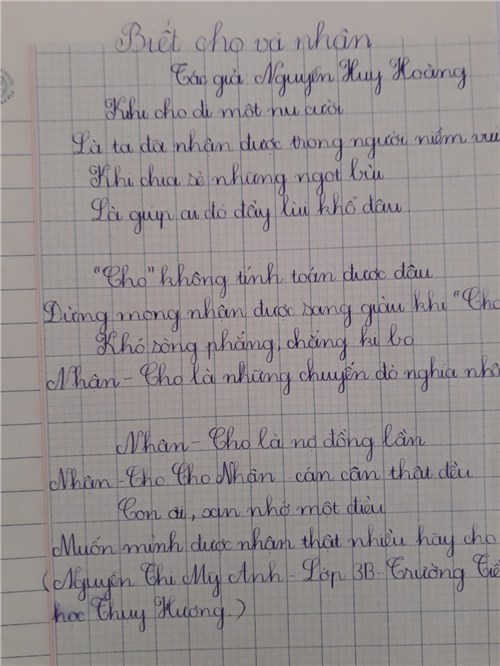 Biết cho và nhận
Tác giả Nguyễn Huy Hoàng
Khi cho đi một nụ cười
Là ta đã nhận được trong người niềm vu
Khi chia sẻ những ngọt bùi
Là giúp ai đó đẩy lùi khổ đâu
"Cho" không tính toán được đâu
Đừng mong nhận được sang giàu khi "Cho
Khó sòng phẳng, chẳng ki bo
Nhận - Cho là những chuyến đò nghĩa nhâ
Nhận - Cho là nợ đồng lần
Nhận - Cho Cho Nhận cán cân thật đều
Con ơi, xin nhớ một điều
Muốn mình được nhận thật nhiều hãy cho
(Nguyễn Thị Mỹ Anh - Lớp 3B - Trường Tiể
học Thụy Hương.)